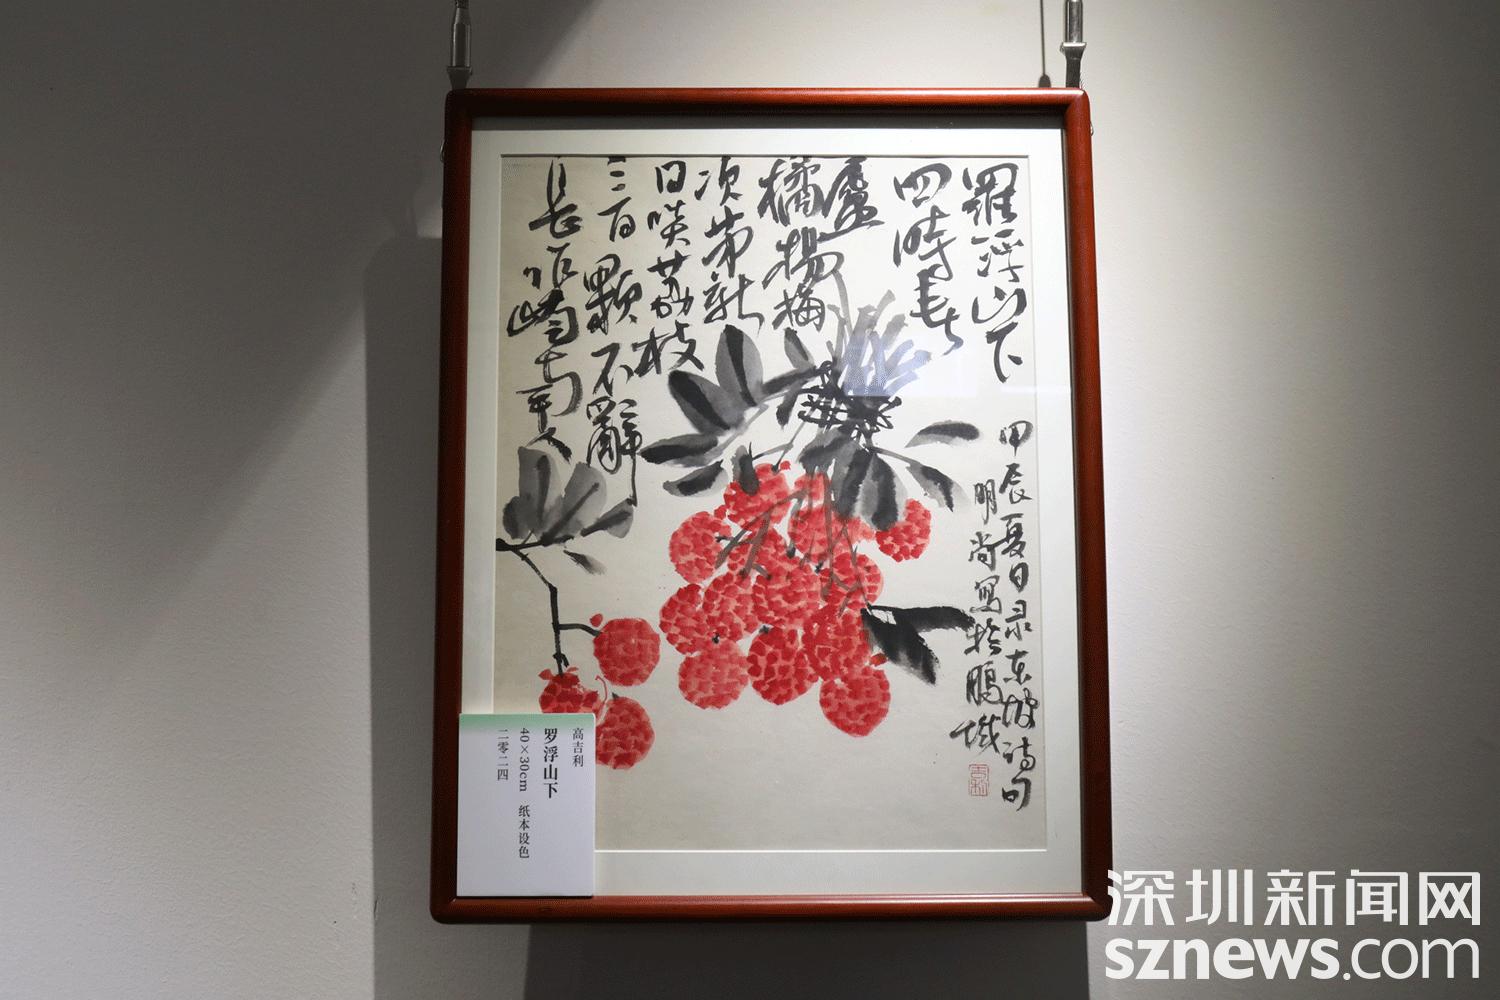 羅浮山下
四時春
盧
橘楊梅
次第新
日啖荔枝
三百顆不辭
長作嶺南人
甲辰夏日录东坡诗句
明尚写於鵬城
吉利
高吉利
罗浮山下
40×30cm 纸本设色
二零二四
深圳新闻网
sznews.com